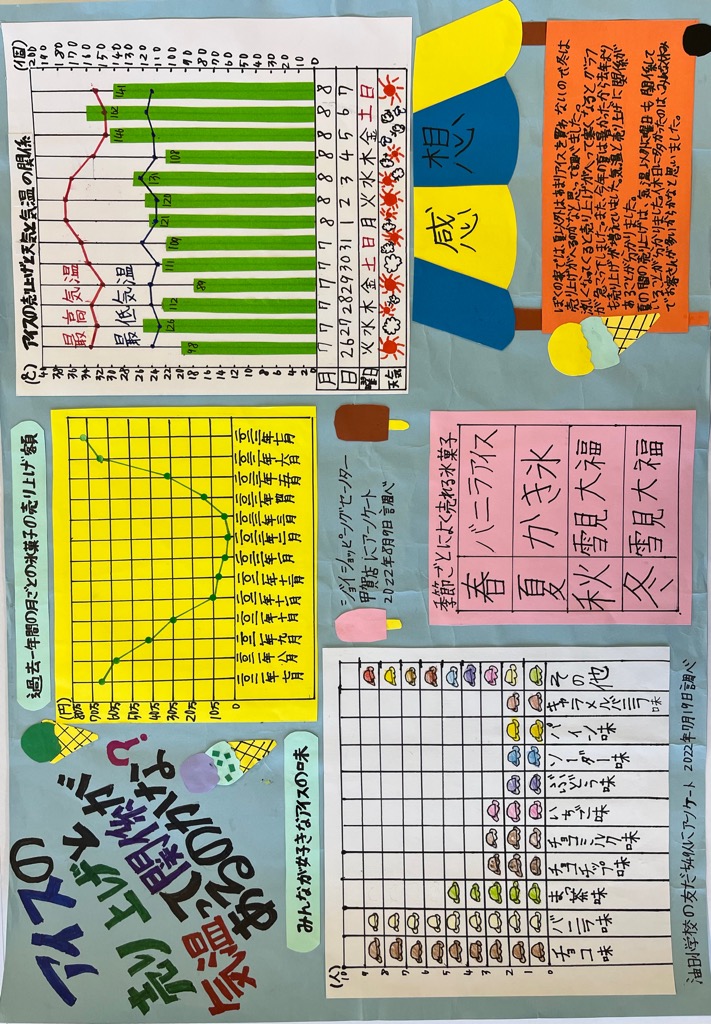 アイスの
売り上げと
気温って関係が
あるのかな?
過去一年間の月ごとの氷菓子の売り上げ額
(円)
80万
70万
60万
50万
40万
30万
20万
10万
0
二〇二一年七月
二〇二一年八月
二〇二一年九月
二〇二一年十月
二〇二一年十一月
二〇二一年十二月
二〇二二年一月
二〇二二年二月
二〇二二年三月
二〇二二年四月
二〇二二年五月
二〇二二年六月
二〇二二年七月
アイスの売り上げと天気と気温の関係
(℃) (個)
40 38 36 34 32 30 28 26 24 22 20 18 16 14 12 10 8 6 4 2 0
200 190 180 170 160 150 140 130 120 110 100 90 80 70 60 50 40 30 20 10 0
最高気温
最低気温
98 126 112 89 111 109 121 120 131 108 146 162 141
月 7 7 7 7 7 7 8 8 8 8 8 8 8
日 26 27 28 29 30 31 1 2 3 4 5 6 7
曜日 火 水 木 金 土 日 月 火 水 木 金 土 日
天気
みんなが好きなアイスの味
(人)
10
9
8
7
6
5
4
3
2
1
0
チョコ味
バニラ味
まっ茶味
チョコチップ味
チョコミルク味
いちご味
ぶどう味
ソーダー味
パイン味
キャラメルバニラ味
その他
油日小学校の友だち49人にアンケート 2022年7月19日調べ
ジョイショッピングセンター
甲賀店にアンケート
2022年8月9日調べ
季節ごとによく売れる氷菓子
春 バニラアイス
夏 かき氷
秋 雪見大福
冬 雪見大福
感想
ぼくの家では、夏以外はあまりアイスを買わないので冬は
売り上げがへるのかなと思って調べました。
涼しくなってくると売り上げがへって寒くなるとグラフ
が急こうでした。また、今年度は暑かったから去年より
も売り上げが増えていました。気温と売り上げに関係が
あることが分かりました。
夏の間の売り上げは、気温以外に曜日も関係して
いることが分かりました。休日に多かったのは、みんな休み
でお客さんが多いからかなと思いました。